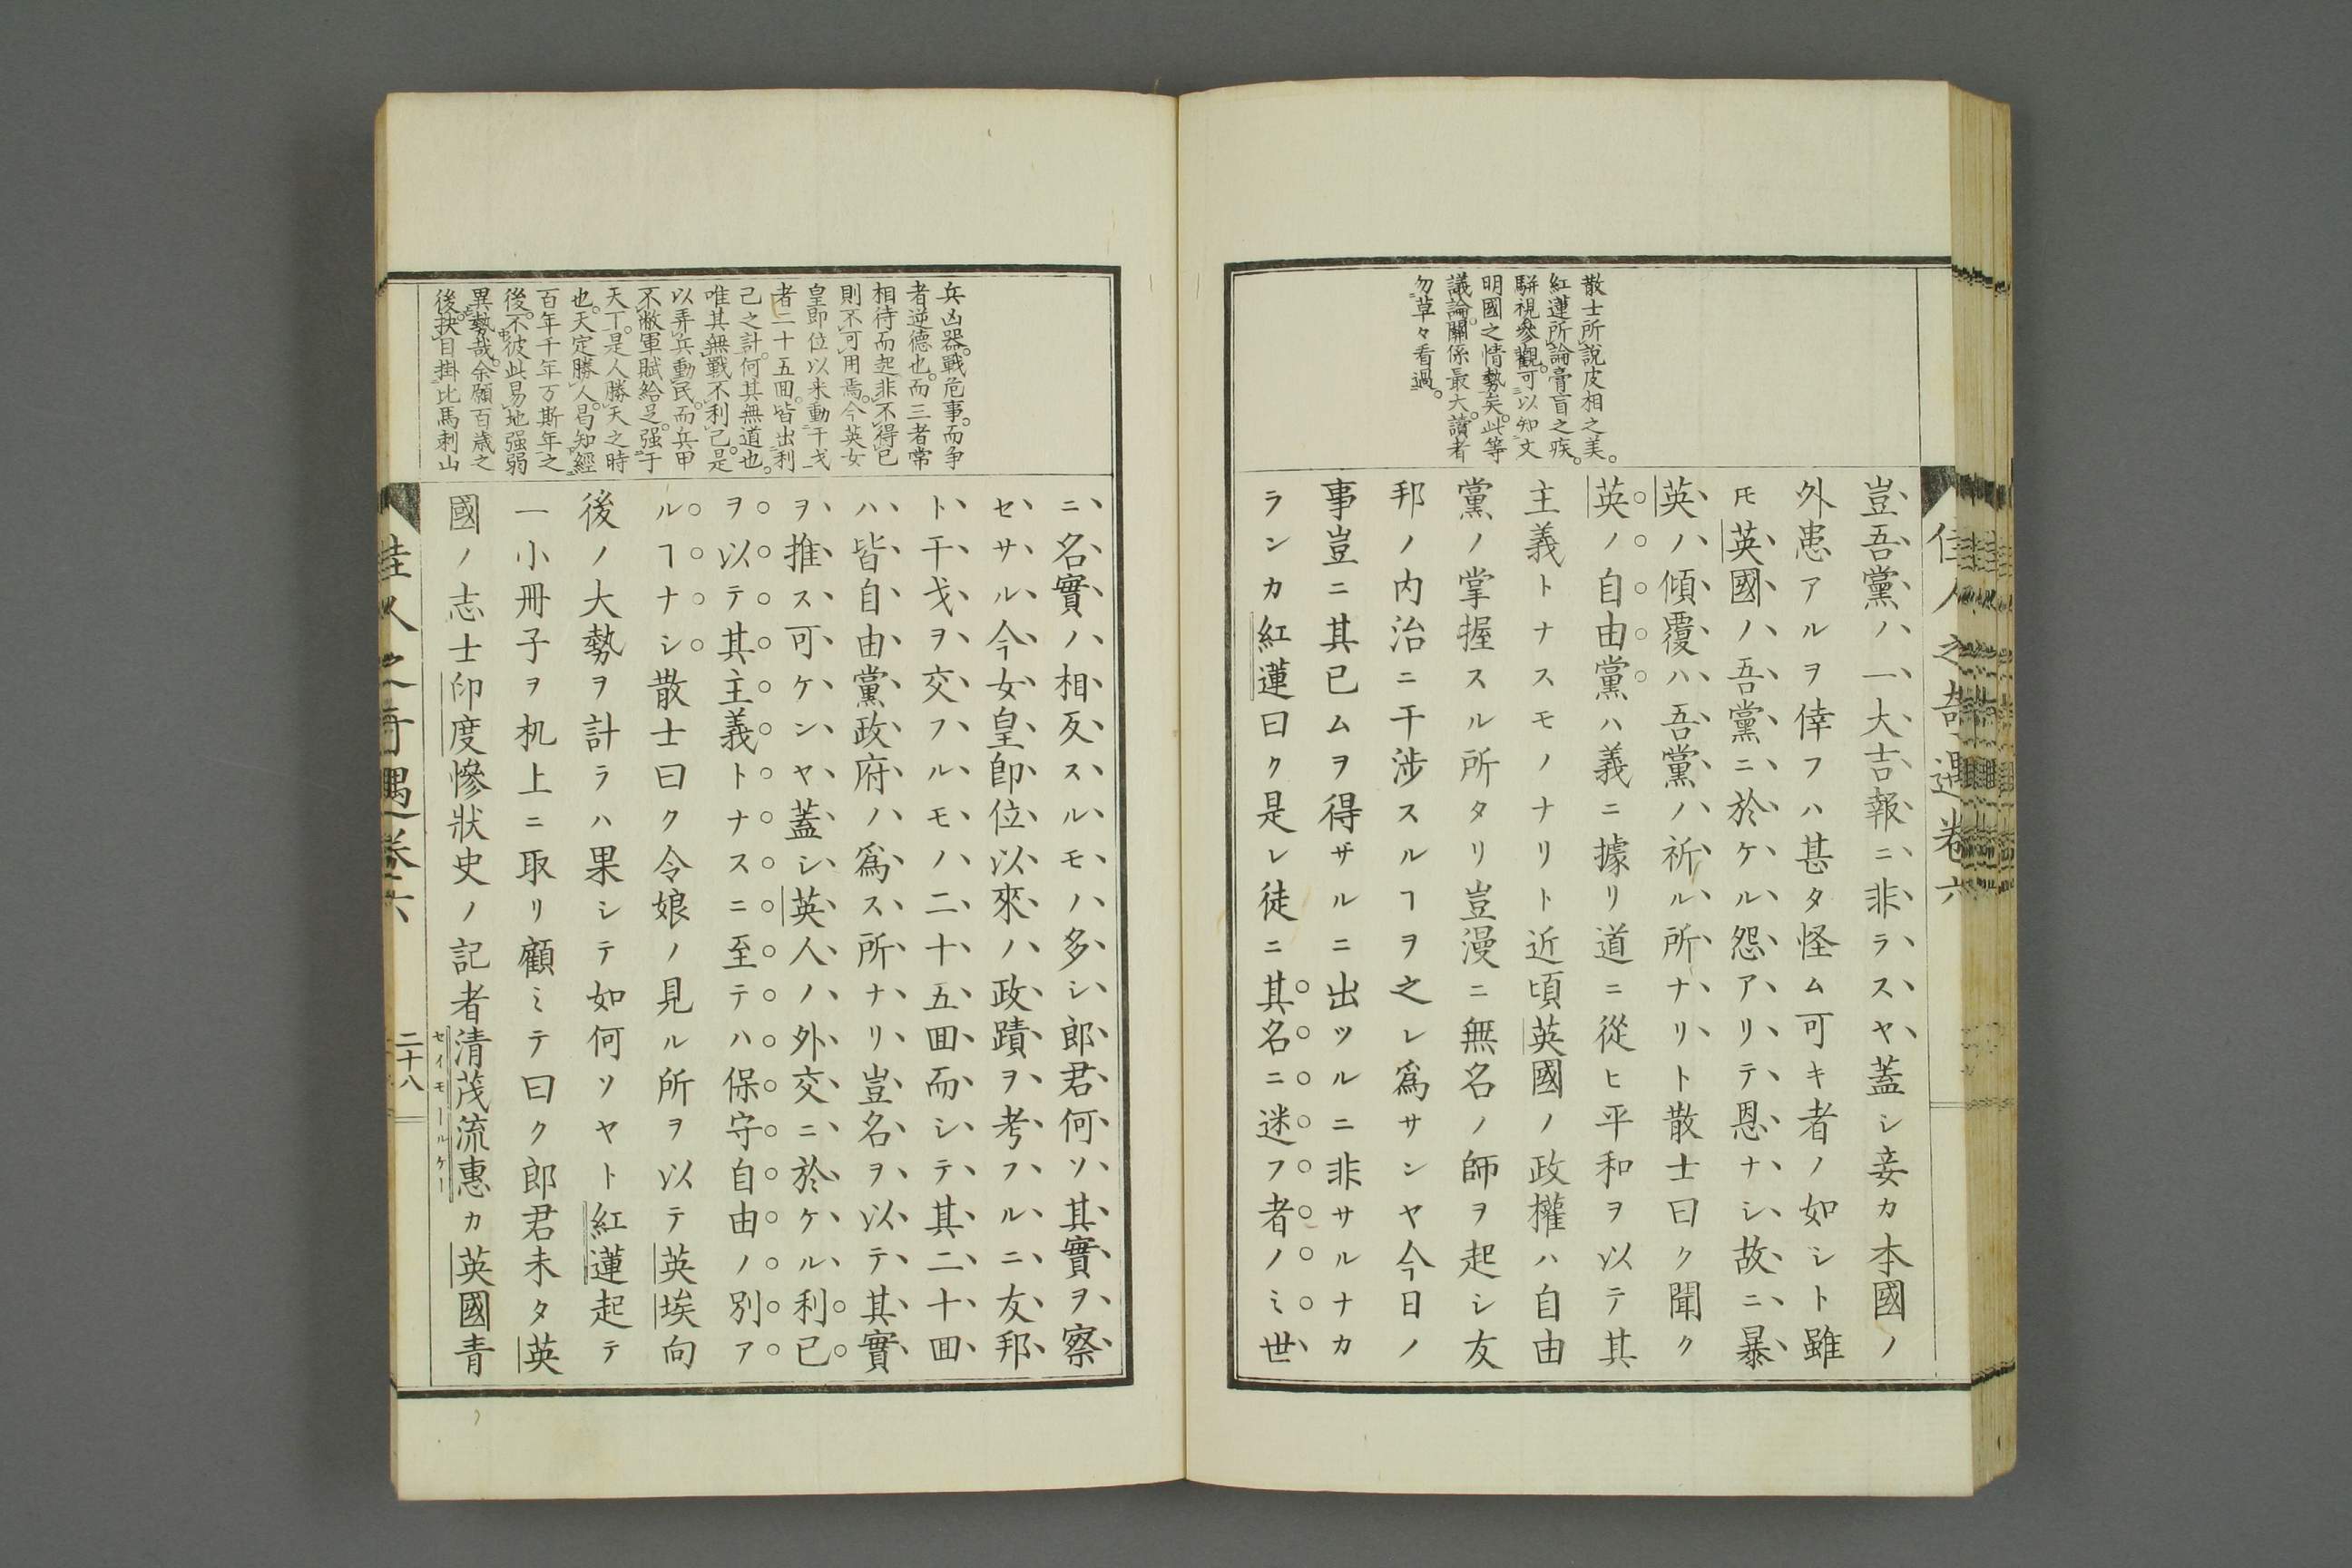 佳人之奇遇卷六
散士所說皮相之美
紅蓮所論膏盲之疾
駢視參觀可以知文
明國之情勢矣此等
議論關係最大讀者
勿草々看過
豈吾黨ノ一大吉報ニ非ラスヤ蓋シ妾カ本國ノ
外患アルヲ倖フハ甚タ怪ム可キ者ノ如シト雖
𪜈英國ノ吾黨ニ於ケル怨アリテ恩ナシ故ニ暴
英ノ傾覆ハ吾黨ノ祈ル所ナリト散士曰ク聞ク
英ノ自由黨ハ義ニ據リ道ニ從ヒ平和ヲ以テ其
主義トナスモノナリト近頃英國ノ政權ハ自由
黨ノ掌握スル所タリ豈漫ニ無名ノ師ヲ起シ友
邦ノ内治ニ干涉スルヿヲ之レ爲サンヤ今日ノ
事豈ニ其已ムヲ得ザルニ出ツルニ非サルナカ
ランカ紅蓮曰ク是レ徒ニ其名ニ迷フ者ノミ世
兵凶器戰危事而争
者逆德也而三者常
相待而起非不得已
則不可用焉今英女
皇即位以来動干戈
者二十五回皆出利
己之計何其無道也
唯其無戰不利己是
以弄兵動民而兵甲
不敝軍賦給足强于
天下是人勝天之時
也天定勝人曷知經
百年千年万斯年之
後不彼此易地强弱
異勢哉余願百歳之
後抉目掛比馬刺山
ニ名實ノ相反スルモノ多シ郎君何ソ其實ヲ察
セサル今女皇即位以來ノ政蹟ヲ考フルニ友邦
ト干戈ヲ交フルモノ二十五回而シテ其二十回
ハ皆自由黨政府ノ爲ス所ナリ豈名ヲ以テ其實
ヲ推ス可ケンヤ蓋シ英人ノ外交ニ於ケル利已
ヲ以テ其主義トナスニ至テハ保守自由ノ別ア
ルヿナシ散士曰ク令娘ノ見ル所ヲ以テ英埃向
後ノ大勢ヲ計ラハ果シテ如何ソヤト紅蓮起テ
一小冊子ヲ机上ニ取リ顧ミテ曰ク郎君未タ英
國ノ志士印度慘狀史ノ記者清茂流惠カ英國青
セイモールケー
佳人之奇遇卷六
二十八